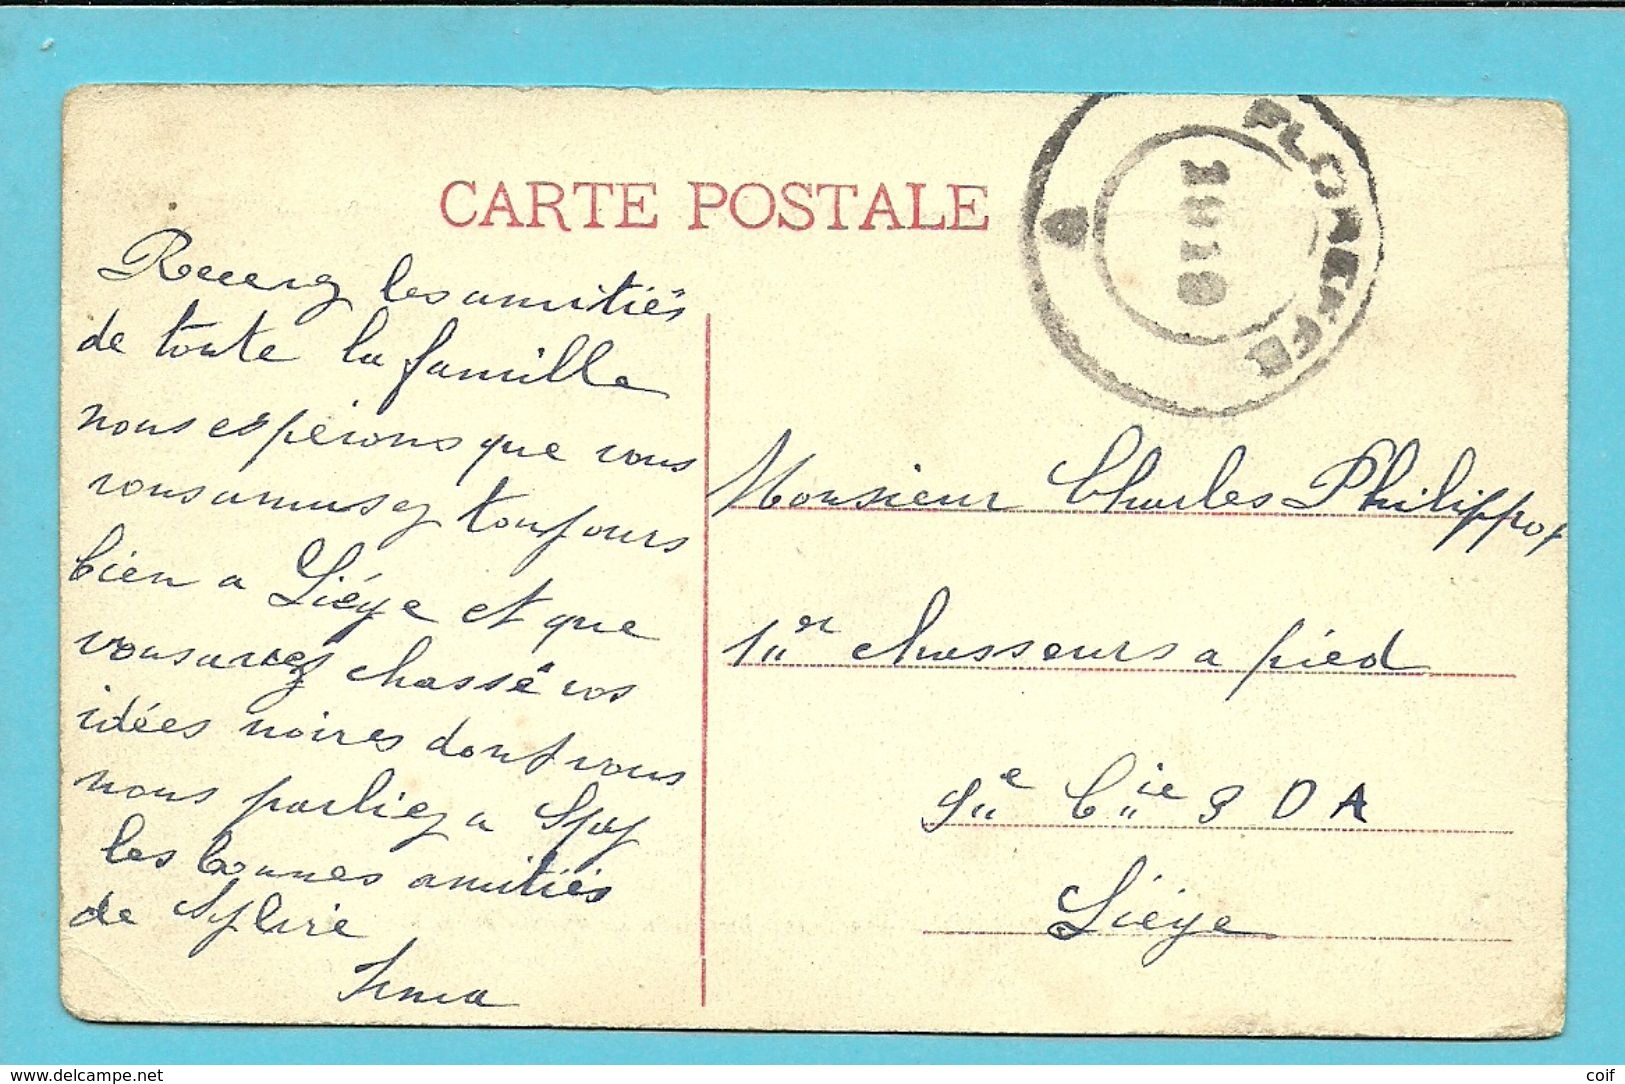 CARTE POSTALE
FLOREFFE
1919
Recevez les amitiés
de toute la famille
nous espérons que vous
vous amusez toujours
bien a Liége et que
vous avez chassé vos
idées noires dont vous
nous parliez a Spy
les bonnes amitiés
de Sylvie
Irma
Monsieur Charles Philippot
1er chasseurs a pied
9e Cie 3 D A
Liége
www.delcampe.net
coif